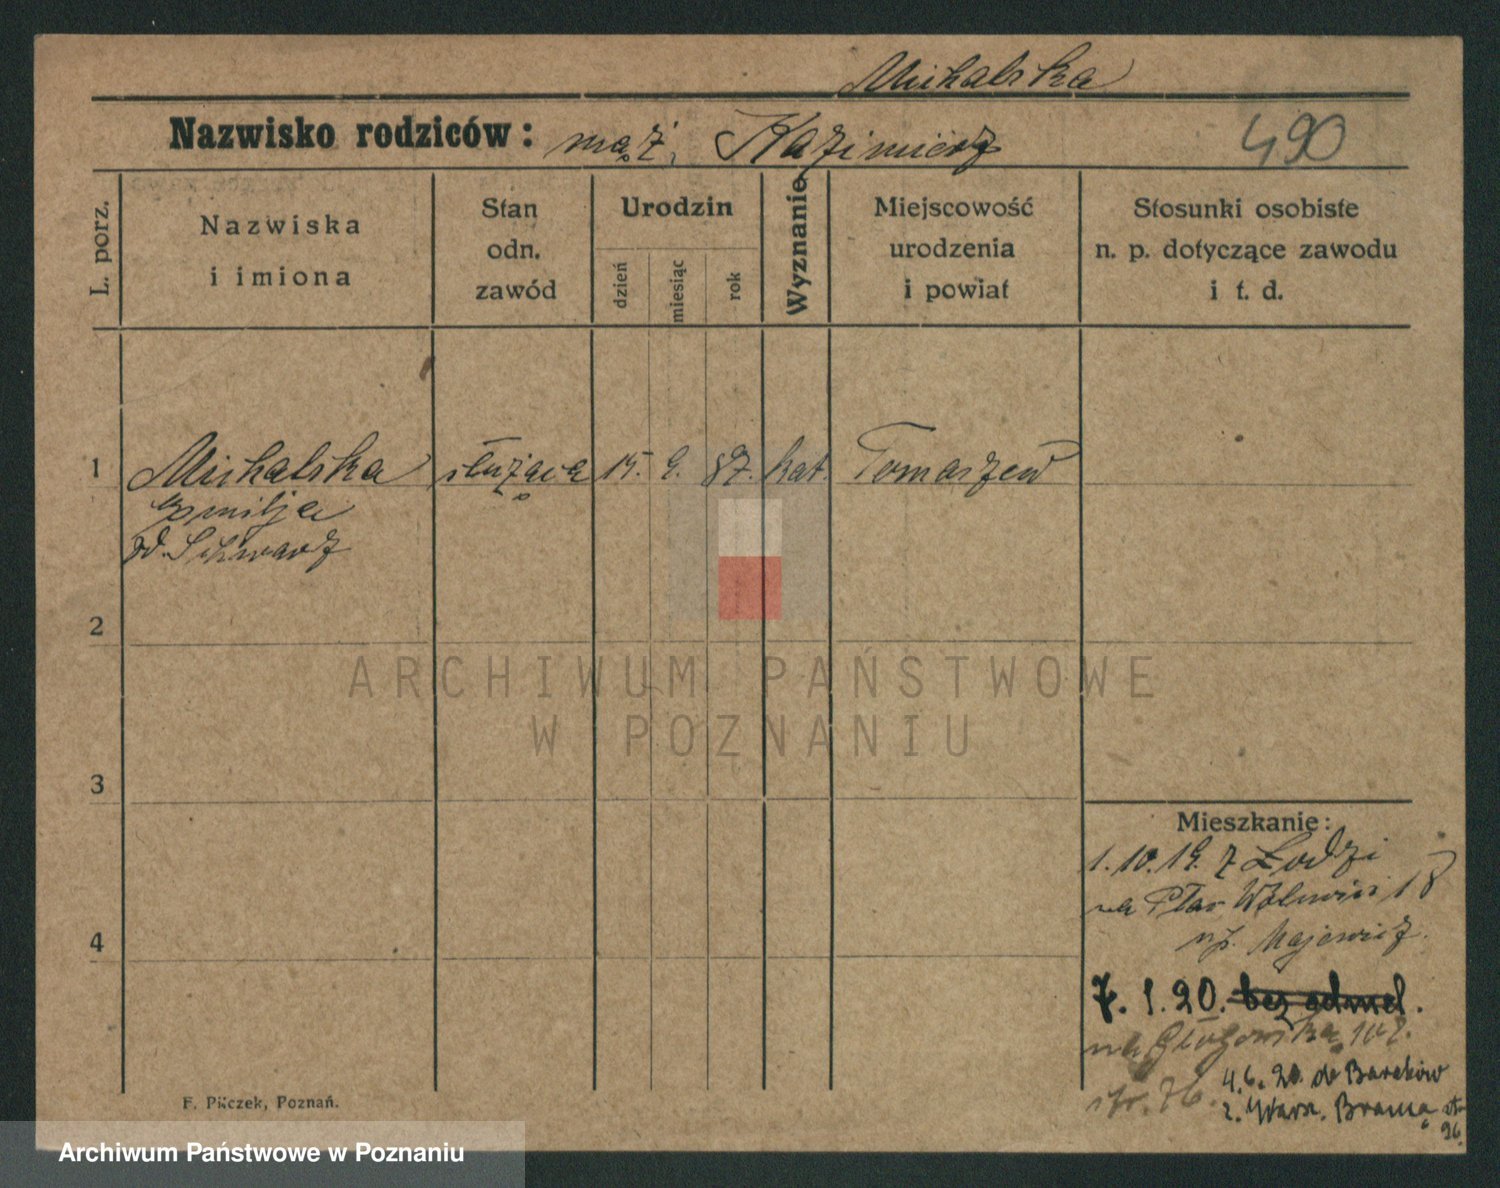 Michalska
Nazwisko rodziców: mąż, Kazimierz 490
L. porz.
Nazwiska
i imiona
Stan
odn.
zawód
Urodzin
dzień
miesiąc
rok
Wyznanie
Miejscowość
urodzenia
i powiat
Stosunki osobiste
n. p. dotyczące zawodu
i t. d.
1 Michalska służąca 15. 9. 87. kat. Tomaszew
Emilja
Schwarz
2
ARCHIWUM PAŃSTWOWE
W POZNANIU
3
4
Mieszkanie:
1.10.19. z Łodzi
na Plac 18
Majewicz.
7. 1. 20. bez odmel.
na Głogowską
str. 76.
4.6.20 do Baraków
z. Warsz. Bramą
F. Pilczek, Poznań.
Archiwum Państwowe w Poznaniu